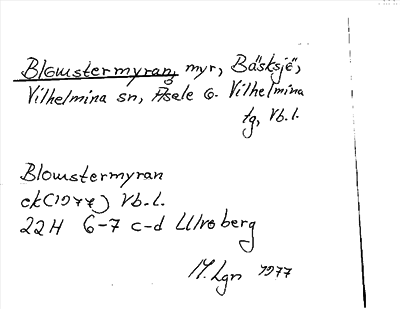 Blomstermyran, myr, Bäsksjö,
Vilhelmina sn, Åsele o. Vilhelmina
tg, Vb.l.
Blomstermyran
ek (1977) Vb.l.
22H 6-7 c-d Ulvoberg
M. Lgn 1977